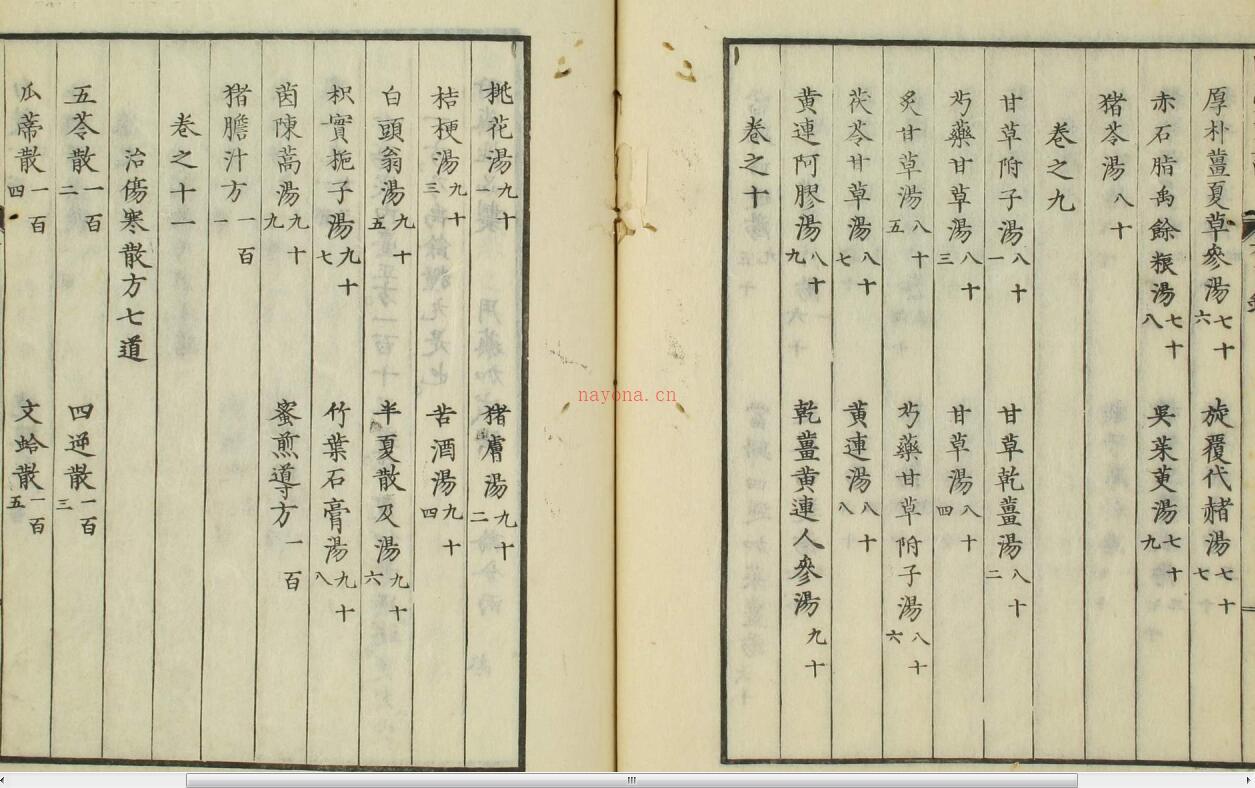 厚朴薑夏草參湯七十六 旋覆代赭湯七十七
赤石脂禹餘粮湯七十八 吳茱萸湯七十九
猪苓湯八十
卷之九
甘草附子湯八十一 甘草乾薑湯八十二
芍藥甘草湯八十三 甘草湯八十四
炙甘草湯八十五 芍藥甘草附子湯八十六
茯苓甘草湯八十七 黄連湯八十八
黄連阿膠湯八十九 乾薑黄連人參湯九十
卷之十
桃花湯九十一 猪膚湯九十二
桔梗湯九十三 苦酒湯九十四
白頭翁湯九十五 半夏散及湯九十六
枳實梔子湯九十七 竹葉石膏湯九十八
茵陳蒿湯九十九 蜜煎導方一百
猪膽汁方一百一
卷之十一
治傷寒散方七道
五苓散一百二 四逆散一百三
瓜蒂散一百四 文蛤散一百五
nayona.cn